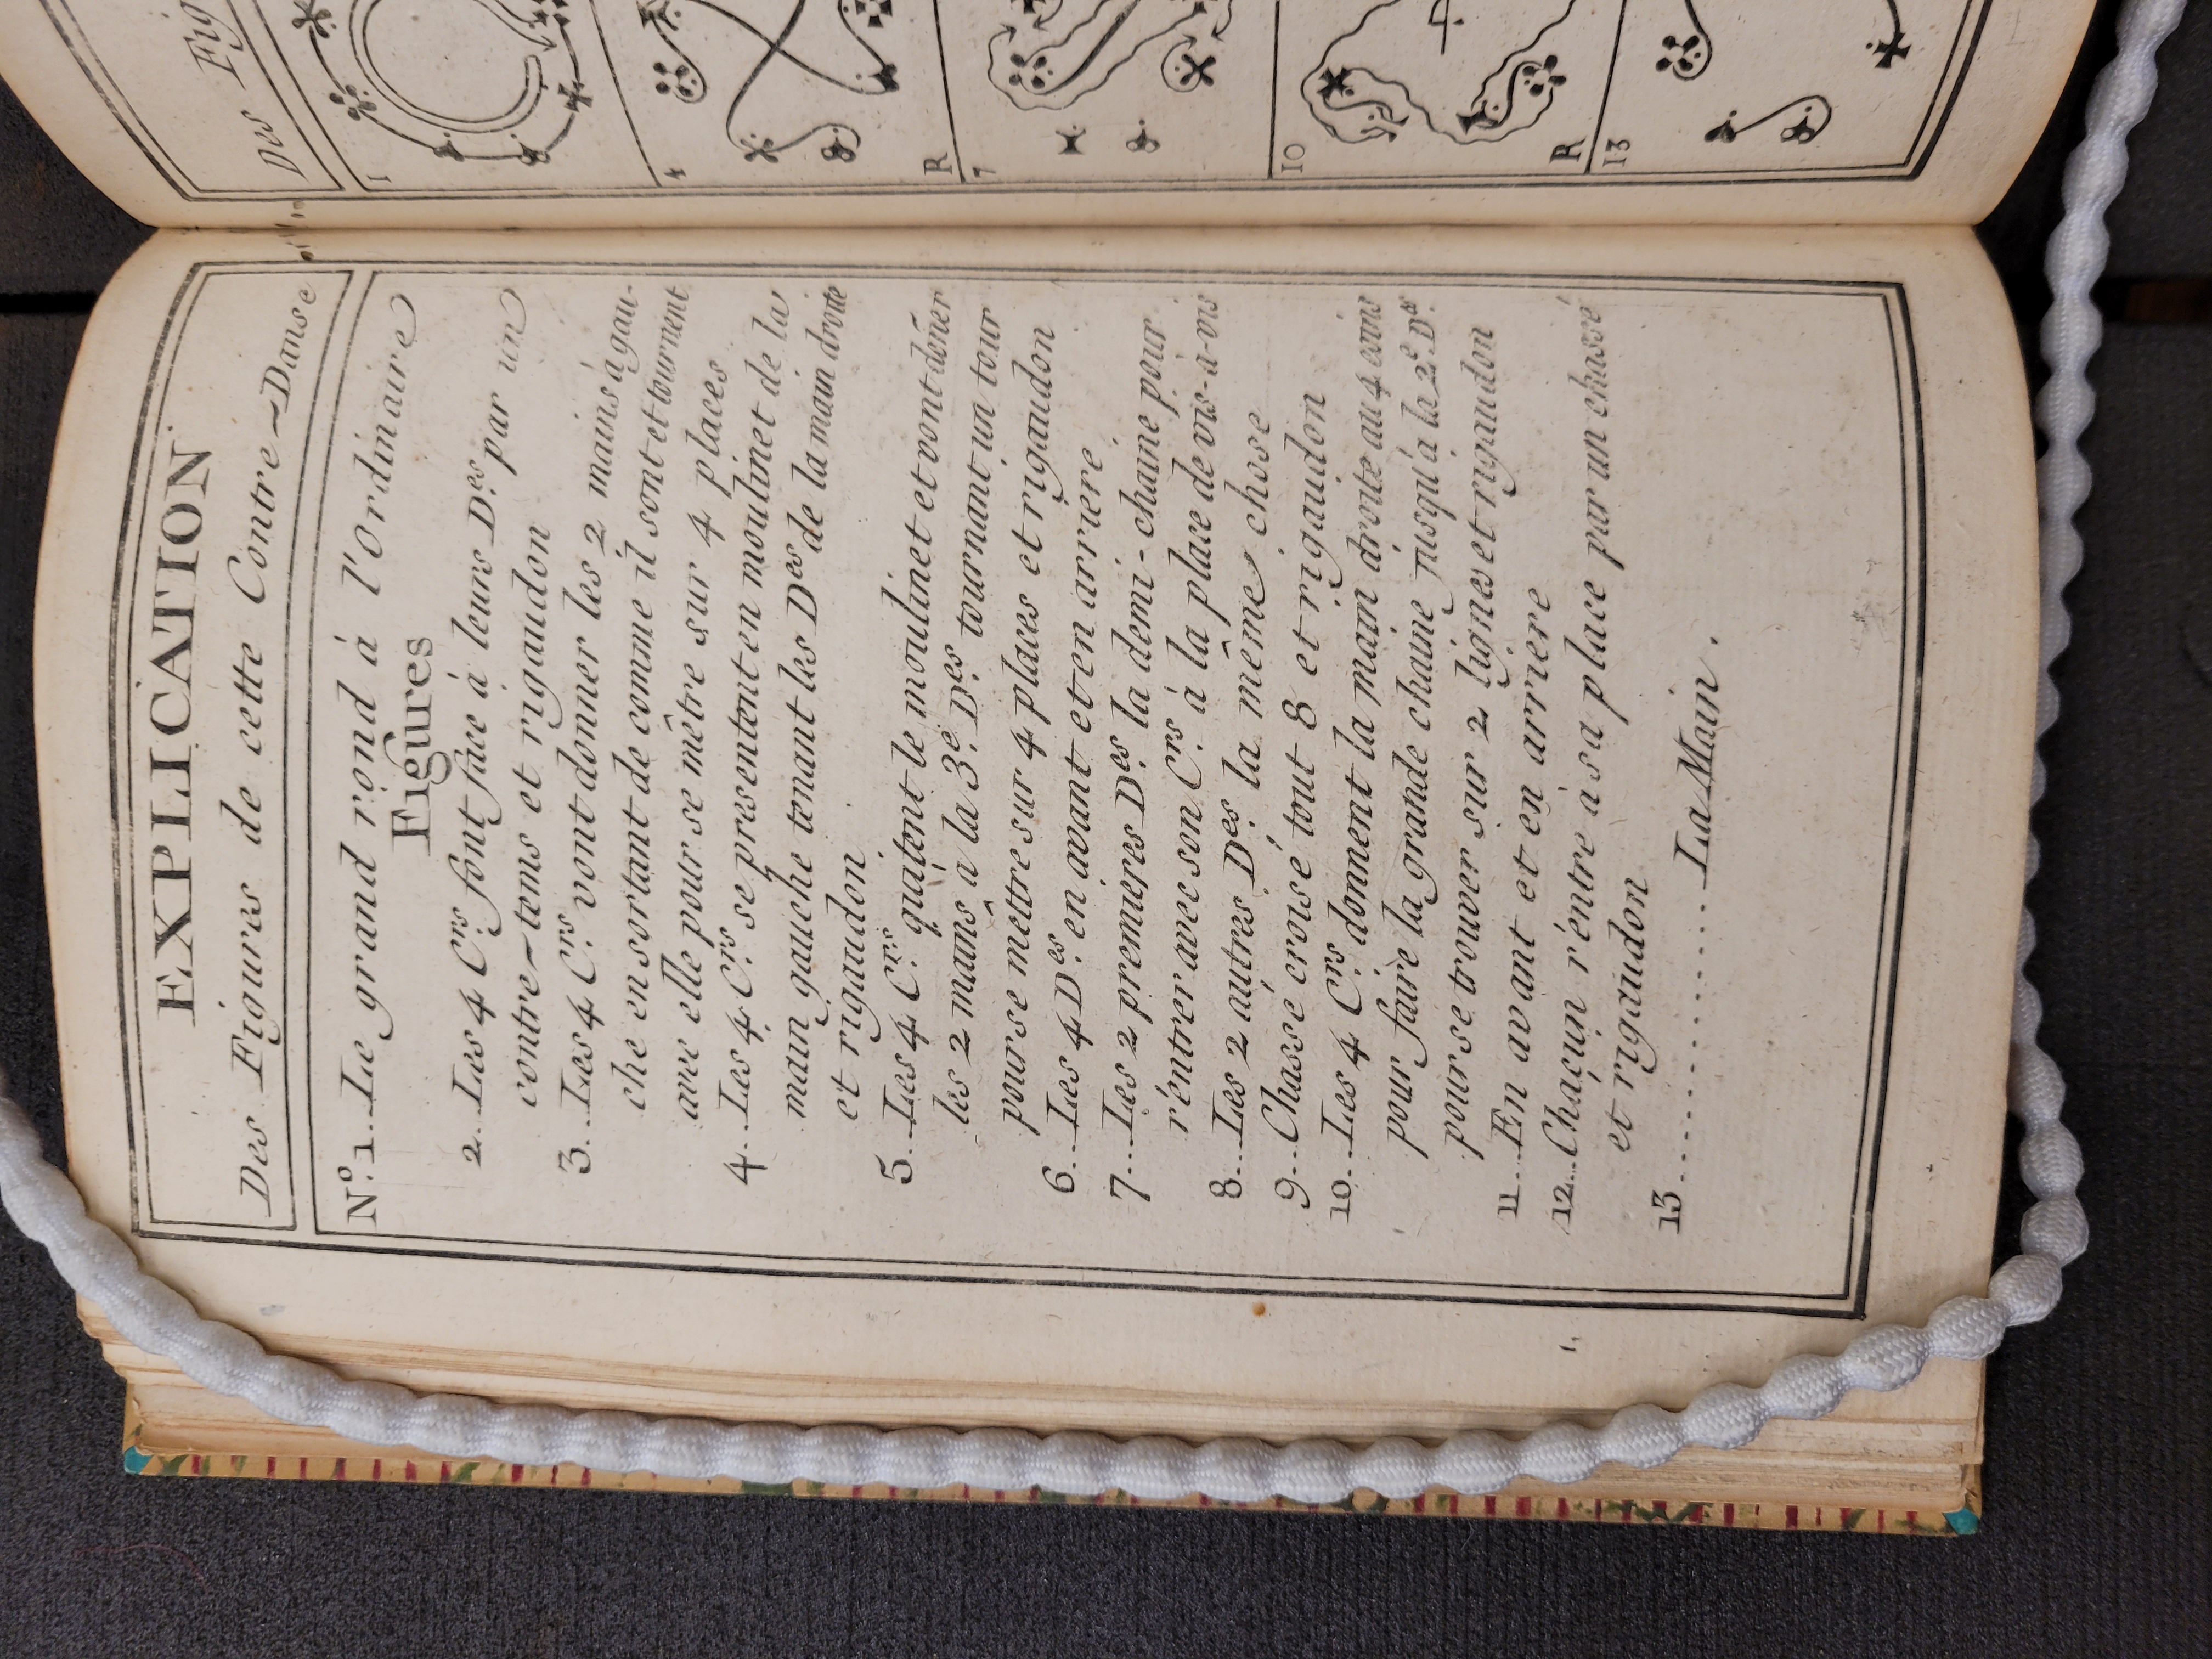 EXPLICATION
Des Figures de cette Contre-Danse
N.º 1... Le grand rond à l'Ordinaire
Figures
2... Les 4 C.rs font face à leurs D.es par un
contre-tems et rigaudon
3... Les 4 C.rs vont donner les 2 mains à gau-
che en sortant de comme il sont et tournent
avec elle pour se mêtre sur 4 places
4... Les 4 C.rs se presentent en moulinet de la
main gauche tenant les D.es de la main droite
et rigaudon.
5... Les 4 C.rs quitent le moulinet et vont doñer
les 2 mains à la 3.e D.es tournant un tour
pour se mettre sur 4 places et rigaudon
6... Les 4 D.es en avant et en arriere
7... Les 2 premieres D.es la demi-chaine pour
r'éntrer avec son C.rs à la place de vis-à-vis
8... Les 2 autres D.es la même chose
9... Chassé croisé tout 8 et rigaudon
10... Les 4 C.rs donnent la main droite au 4 coins
pour faire la grande chaine jusqu'à la 2.e D.es
pour se trouver sur 2 lignes et rigaudon
11... En avant et en arriere
12... Chacun r'éntre à sa place par un chassé
et rigaudon
13.................. La Main.
Des Fig
1
4
R
7
10
R
13